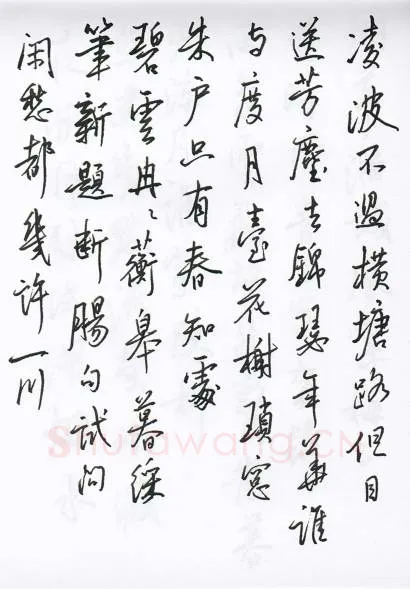 凌波不過橫塘路但目
送芳塵去錦瑟年華誰
与度月臺花榭瑣窓
朱户只有春知處
碧雲冉々蘅皋暮綵
筆新題断腸句試问
闲愁都幾許一川
Shufawang.CN